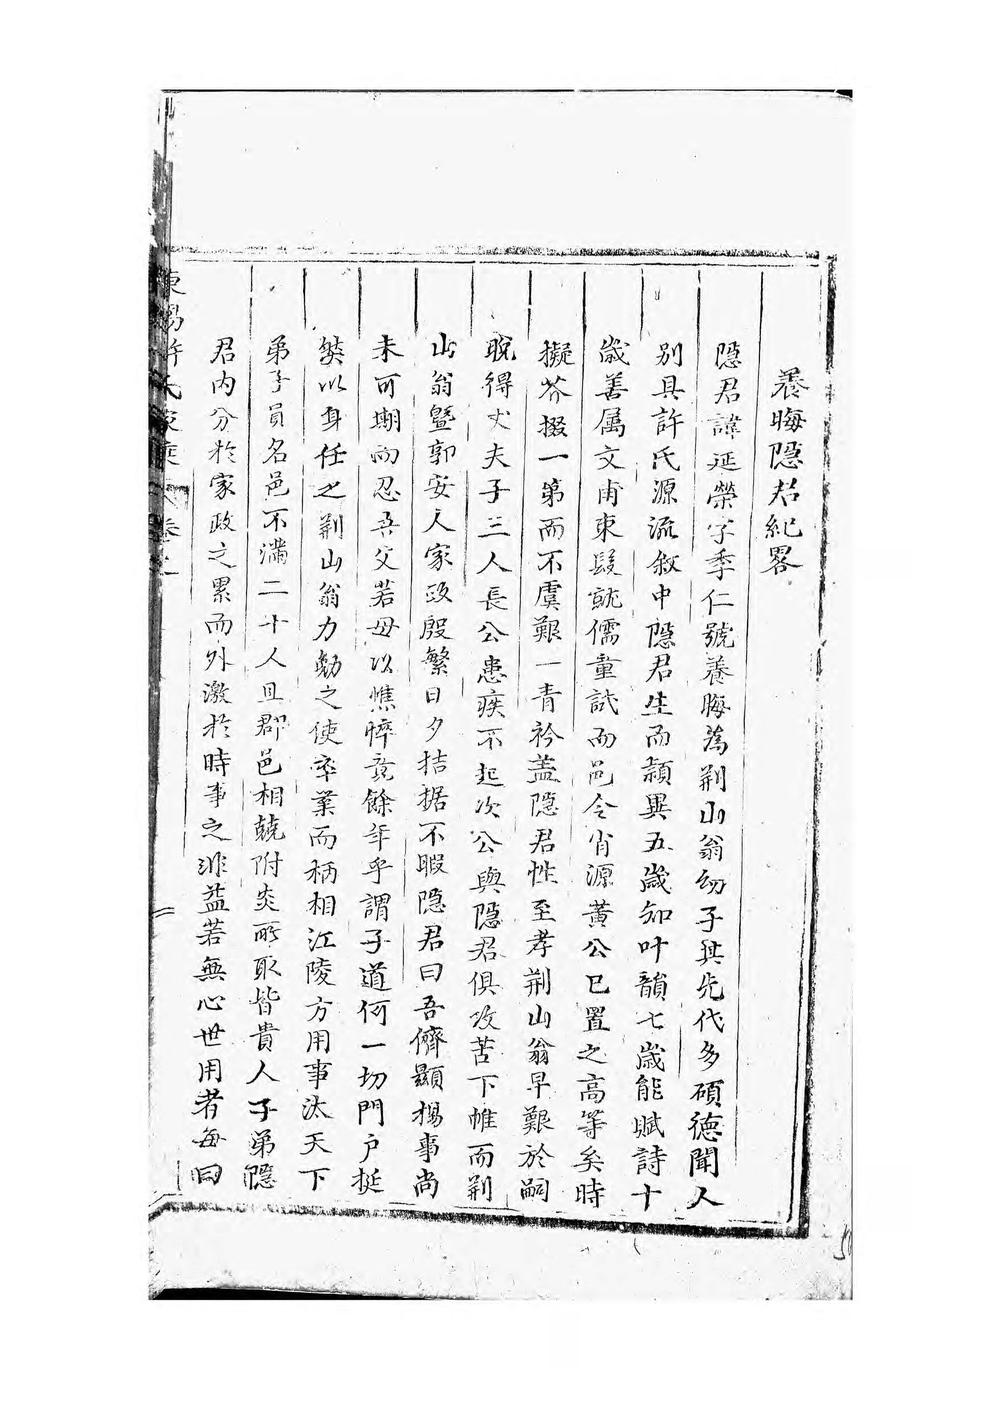 養晦隱君紀畧
隱君諱延榮字季仁號養晦為荆山翁幼子其先代多碩德聞人
別具許氏源流敘中隱君生而穎異五歲知叶韻七歲能賦詩十
歲善属文甫束髮就儒童試而邑令肖源黄公已置之高等矣時
擬芥掇一第而不虞艱一青衿盖隱君性至孝荆山翁早艱於嗣
晚得丈夫子三人長公患疾不起次公與隱君俱攻苦下帷而荆
山翁暨郭安人家政殷繁日夕拮据不暇隱君曰吾儕顯揚事尚
未可期而忍吾父若母以憔悴竟餘年乎謂子道何一切門户挺
然以身任之荆山翁力勸之使卒業而柄相江陵方用事汰天下
弟子員名邑不滿二十人且郡邑相競附炎所取皆貴人子弟隱
君内分於家政之累而外激於時事之非益若無心世用者每曰
東陽許氏家乘 卷之